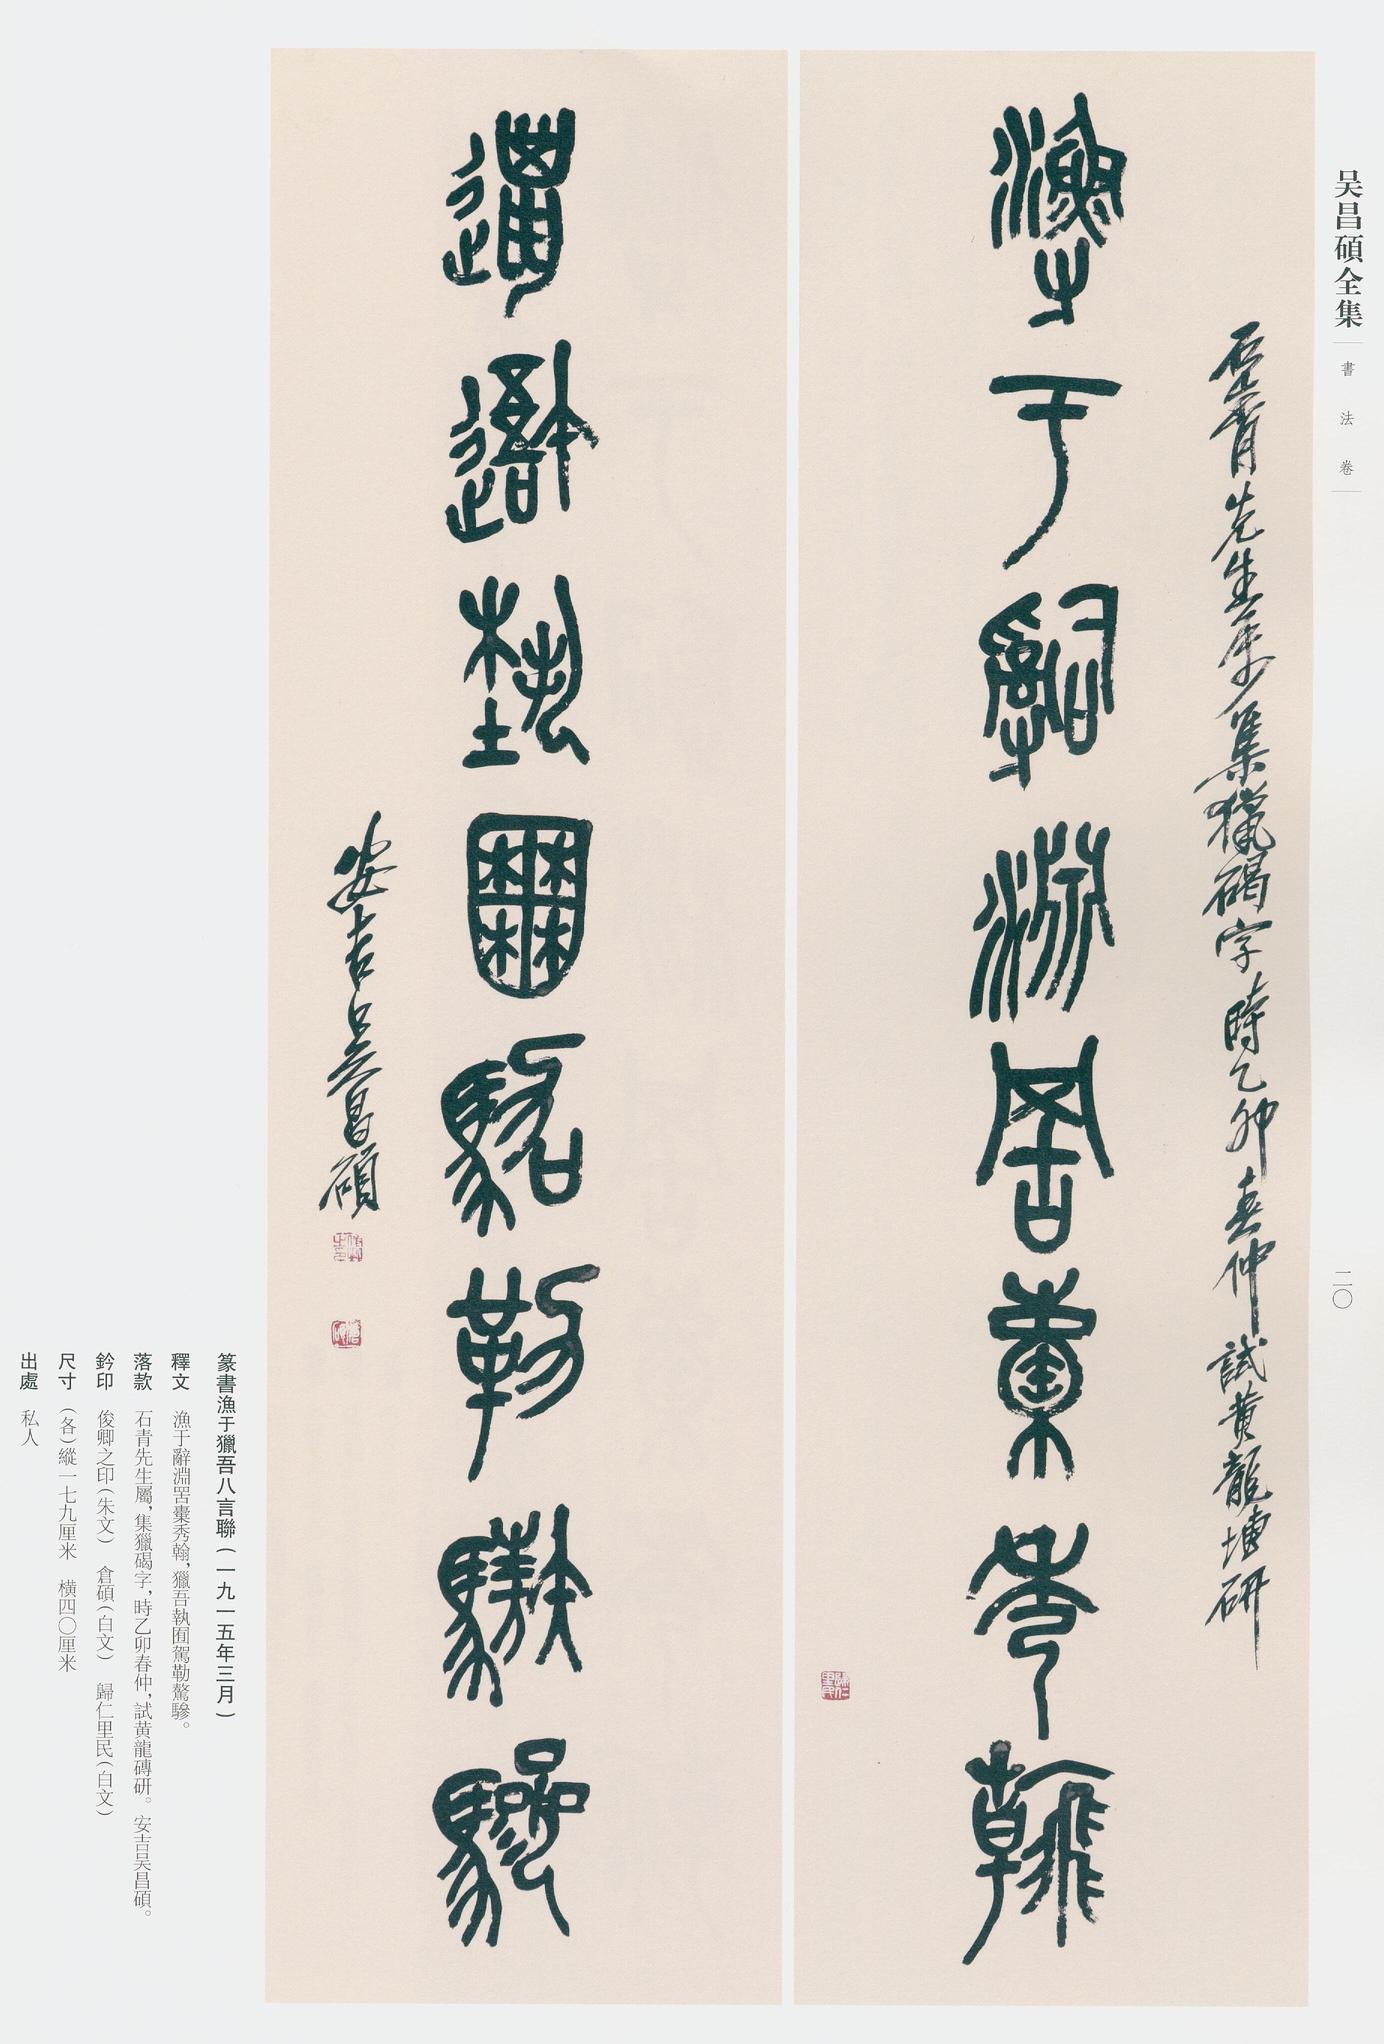 吴昌碩全集
書法卷
二〇
石青先生屬集獵碣字時乙卯春仲試黄龍塼研
漁于辭淵罟櫜秀翰
獵吾執囿駕勒驁驂
安吉吴昌碩
俊卿之印
倉碩
歸仁里民
篆書漁于獵吾八言聯(一九一五年三月)
釋文 漁于辭淵罟櫜秀翰,獵吾執囿駕勒驁驂。
落款 石青先生屬,集獵碣字,時乙卯春仲,試黄龍磚研。安吉吴昌碩。
鈐印 俊卿之印(朱文) 倉碩(白文) 歸仁里民(白文)
尺寸 (各)縱一七九厘米 橫四〇厘米
出處 私人